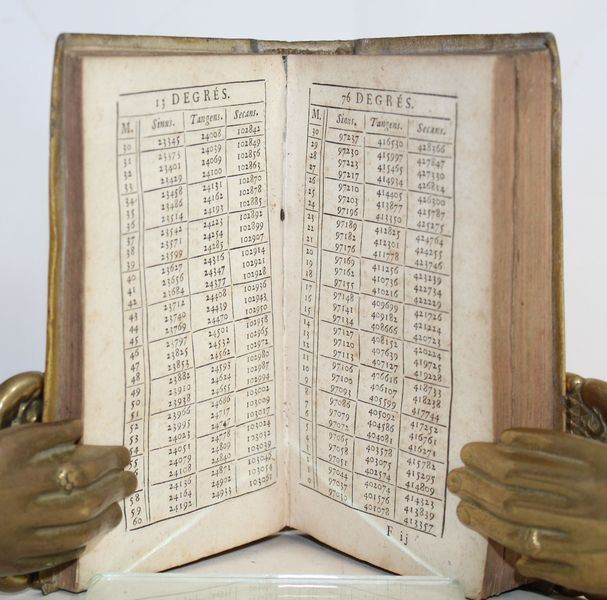 13 DEGRÉS.
M. Sinus. Tangens. Secans.
30 23345 24008 102842
31 23373 24039 102849
32 23401 24069 102856
33 23429 24100 102863
34 23458 24131 102870
35 23486 24162 102878
36 23514 24193 102885
37 23542 24223 102892
38 23571 24254 102899
39 23599 24285 102907
40 23627 24316 102914
41 23656 24347 102921
42 23684 24377 102928
43 23712 24408 102936
44 23740 24439 102943
45 23769 24470 102950
46 23797 24501 102958
47 23825 24532 102965
48 23853 24562 102972
49 23882 24593 102980
50 23910 24624 102987
51 23938 24655 102994
52 23966 24686 103002
53 23995 24717 103009
54 24023 24747 103017
55 24051 24778 103024
24079 24809 103032
24108 24840 103039
58 24136 24871 103046
59 24164 24902 103054
60 24192 24933 103061
76 DEGRÉS.
M. Sinus. Tangens. Secans.
30 97237 416530 428366
29 97230 415997 427847
28 97223 415465 427330
27 97217 414934 426814
26 97210 414405 426300
25 97203 413877 425787
24 97196 413350 425275
23 97189 412825 424764
22 97182 412301 424255
21 97176 411778 423746
20 97169 411256 423239
19 97162 410736 422734
18 97155 410216 422229
17 97148 409699 421726
16 97141 409182 421224
15 97134 408666 420723
14 97127 408152 420224
13 97120 407639 419725
12 97113 407127 419228
11 97106 476616 418733
10 97100 406107 418238
9 97093 405599 417744
8 97086 405092 417252
7 97079 404586 416761
6 97072 404081 416271
5 97065 403578 415782
4 97058 403075 415295
3 97051 402574 414809
2 97044 402074 414323
1 97037 401576 413839
0 97030 401078 413357
F ij